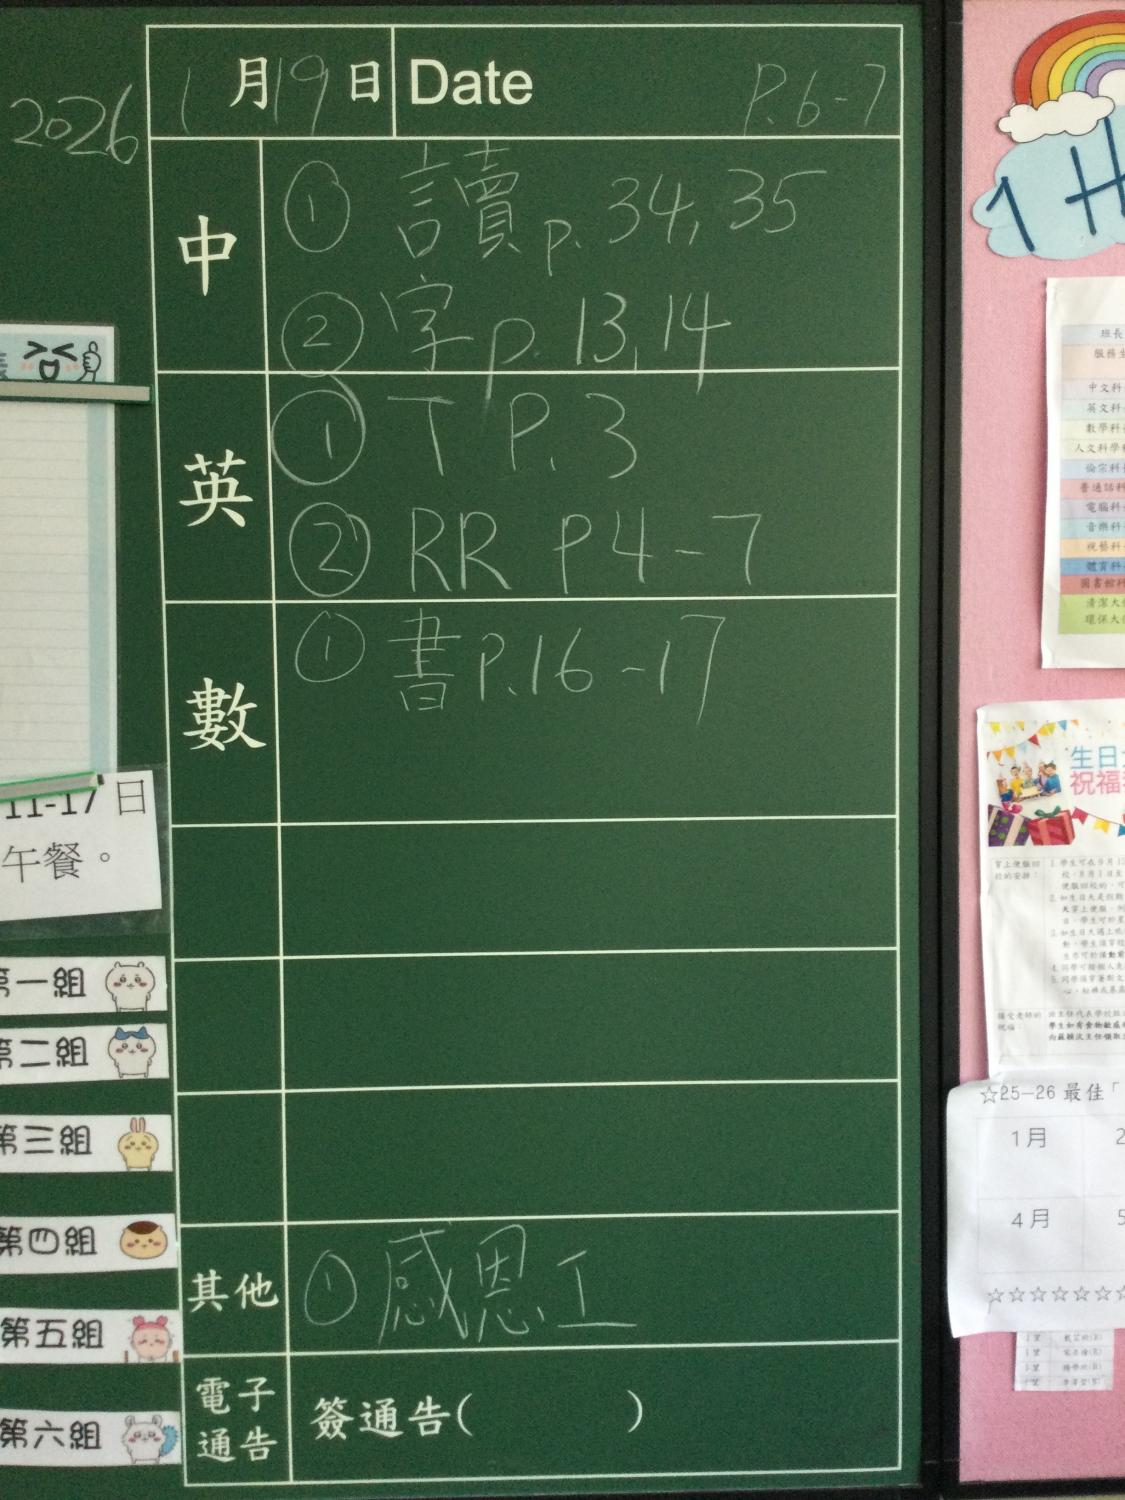 2026
1月19日
Date
P.6-7
中
① 讀 p. 34, 35
② 字 p. 13, 14
英
① T P. 3
② RR P4-7
數
① 書 P.16-17
其他
① 感恩工
電子
通告
簽通告( )
11-17 日
午餐。
第一組
第二組
第三組
第四組
第五組
第六組
1 H
班長
中文科
英文科
數學科
人文科學
普通話科
電腦科
音樂科
視藝科
體育科
圖書館科
清潔大
環保大
生日
祝福
☆25—26 最佳「
1月
2
4月
5
☆☆☆☆☆☆☆